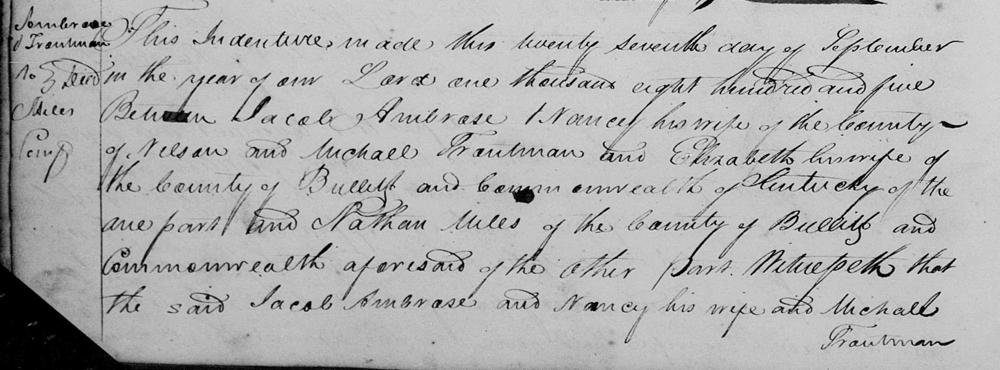 Ambrose
& Trautman
to } Deed
Miles
Comp
This Indenture made this twenty seventh day of September
in the year of our Lord one thousand eight hundred and five
Between Jacob Ambrose & Nancy his wife of the County
of Nelson and Michael Trautman and Elizabeth his wife of
the County of Bullitt and Commonwealth of Kentucky of the
one part and Nathan Miles of the County of Bullitt and
Commonwealth aforesaid of the other part. Witnesseth that
the said Jacob Ambrose and Nancy his wife and Michael
Trautman